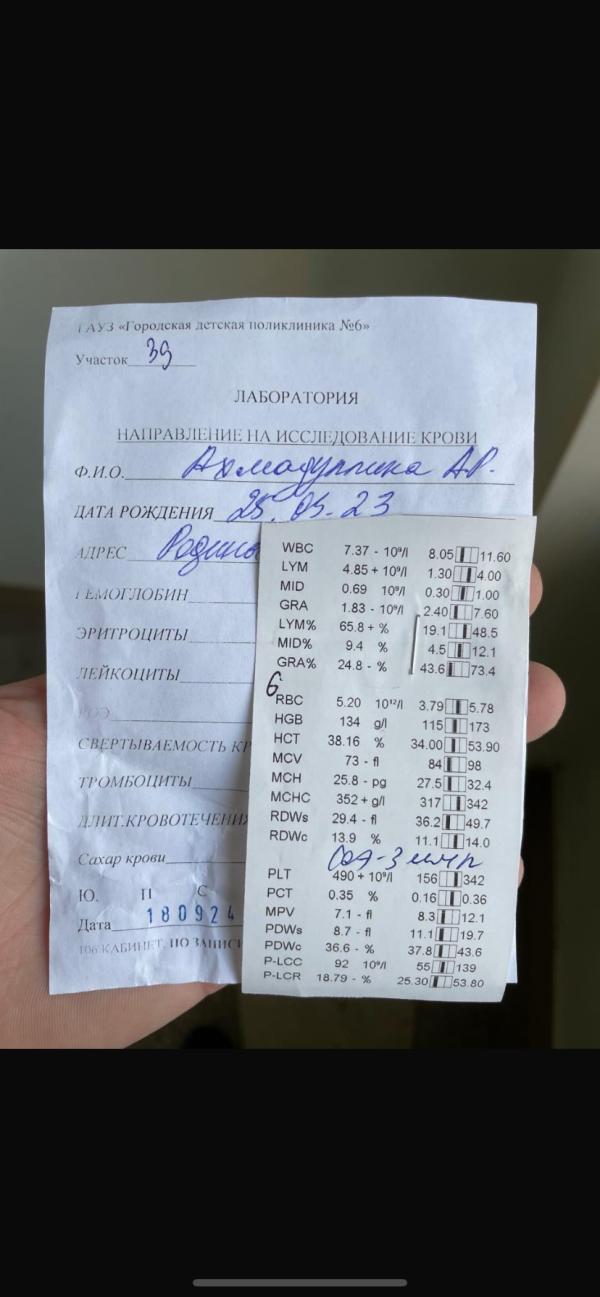 ГАУЗ «Городская детская поликлиника №6»
Участок 39
ЛАБОРАТОРИЯ
НАПРАВЛЕНИЕ НА ИССЛЕДОВАНИЕ КРОВИ
Ф.И.О. Ахмадуллина А.Р.
ДАТА РОЖДЕНИЯ 25.05.23
АДРЕС
ГЕМОГЛОБИН
ЭРИТРОЦИТЫ
ЛЕЙКОЦИТЫ
РОЭ
СВЕРТЫВАЕМОСТЬ КР
ТРОМБОЦИТЫ
ДЛИТ.КРОВОТЕЧЕНИЯ
Сахар крови
Ю. П С
Дата 180924
106 КАБИНЕТ, ПО ЗАПИСИ
WBC 7.37 - 10⁹/l 8.05 11.60
LYM 4.85 + 10⁹/l 1.30 4.00
MID 0.69 10⁹/l 0.30 1.00
GRA 1.83 - 10⁹/l 2.40 7.60
LYM% 65.8 + % 19.1 48.5
MID% 9.4 % 4.5 12.1
GRA% 24.8 - % 43.6 73.4
6
RBC 5.20 10¹²/l 3.79 5.78
HGB 134 g/l 115 173
HCT 38.16 % 34.00 53.90
MCV 73 - fl 84 98
MCH 25.8 - pg 27.5 32.4
MCHC 352 + g/l 317 342
RDWs 29.4 - fl 36.2 49.7
RDWc 13.9 % 11.1 14.0
СОЭ-3 мм/ч
PLT 490 + 10⁹/l 156 342
PCT 0.35 % 0.16 0.36
MPV 7.1 - fl 8.3 12.1
PDWs 8.7 - fl 11.1 19.7
PDWc 36.6 - % 37.8 43.6
P-LCC 92 10⁹/l 55 139
P-LCR 18.79 - % 25.30 53.80